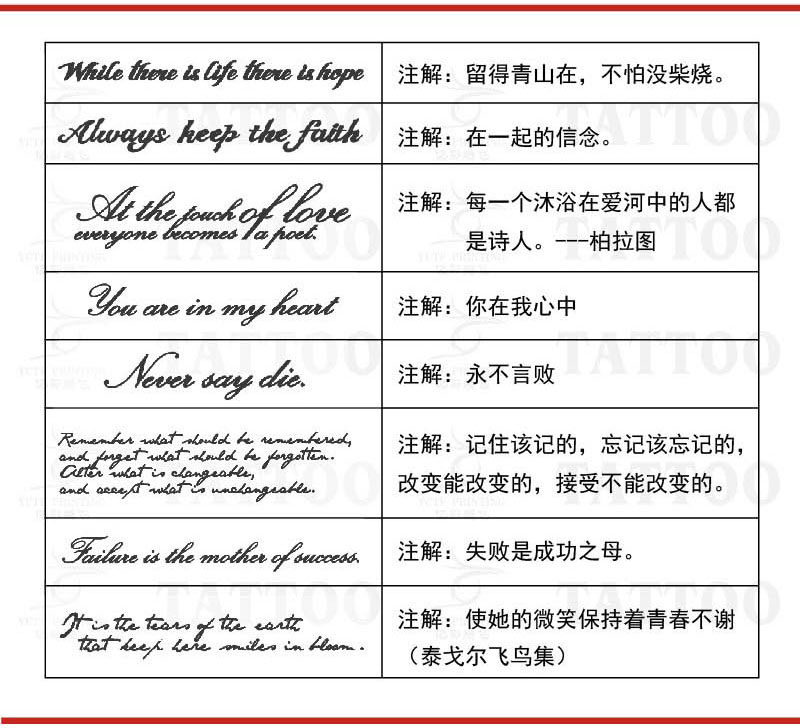 While there is life there is hope
注解：留得青山在，不怕没柴烧。
Always keep the faith
注解：在一起的信念。
At the touch of love
everyone becomes a poet.
注解：每一个沐浴在爱河中的人都
是诗人。---柏拉图
You are in my heart
注解：你在我心中
Never say die.
注解：永不言败
Remember what should be remembered,
and forget what should be forgotten.
Alter what is changeable,
and accept what is unchangeable.
注解：记住该记的，忘记该忘记的，
改变能改变的，接受不能改变的。
Failure is the mother of success.
注解：失败是成功之母。
It is the tears of the earth
that keep here smiles in bloom.
注解：使她的微笑保持着青春不谢
（泰戈尔飞鸟集）
TATTOO
TATTOO
TATTOO
TATTOO
TATTOO
TATTOO
TATTOO
TATTOO